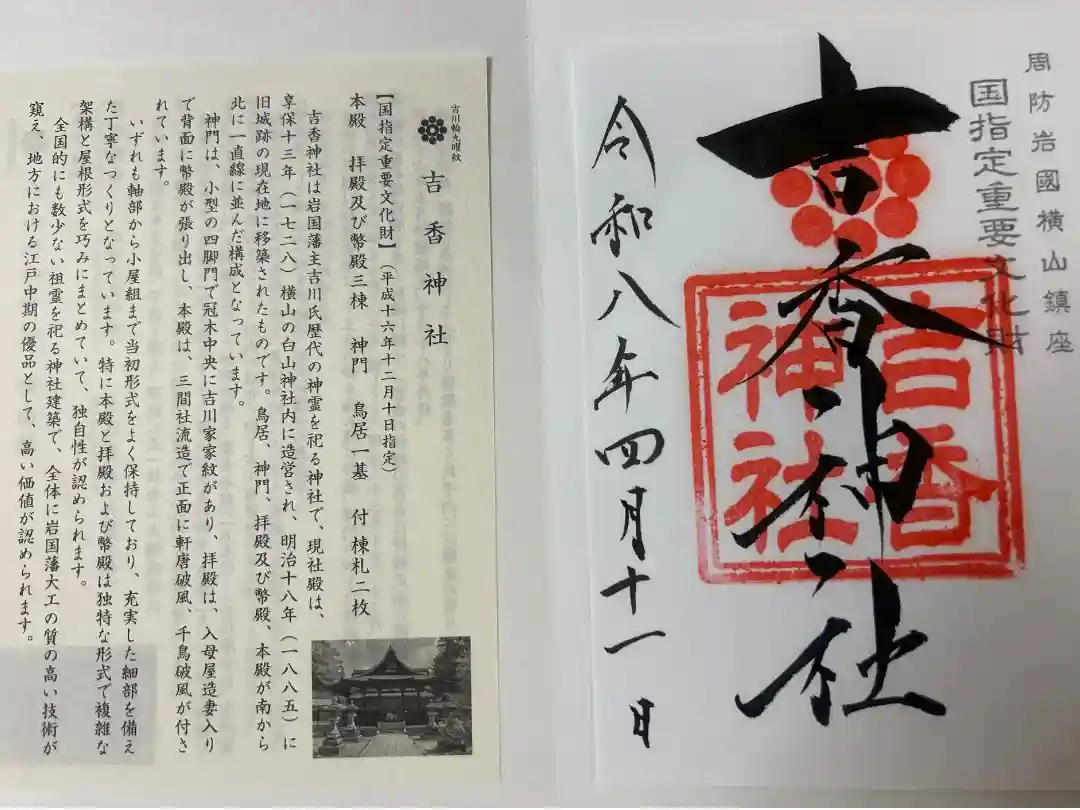 周防岩國横山鎮座
国指定重要文化財
吉香神社
吉香
神社
令和八年四月十一日
吉川輪九曜紋
吉香神社
【国指定重要文化財】（平成十六年十二月十日指定）
本殿　拝殿及び幣殿三棟　神門　鳥居一基　付棟札二枚
吉香神社は岩国藩主吉川氏歴代の神霊を祀る神社で、現社殿は、
享保十三年（一七二八）横山の白山神社内に造営され、明治十八年（一八八五）に
旧城跡の現在地に移築されたものです。鳥居、神門、拝殿及び幣殿、本殿が南から
北に一直線に並んだ構成となっています。
神門は、小型の四脚門で冠木中央に吉川家家紋があり、拝殿は、入母屋造妻入り
で背面に幣殿が張り出し、本殿は、三間社流造で正面に軒唐破風、千鳥破風が付さ
れています。
いずれも軸部から小屋組まで当初形式をよく保持しており、充実した細部を備え
た丁寧なつくりとなっています。特に本殿と拝殿および幣殿は独特な形式で複雑な
架構と屋根形式を巧みにまとめていて、独自性が認められます。
全国的にも数少ない祖霊を祀る神社建築で、全体に岩国藩大工の質の高い技術が
窺え、地方における江戸中期の優品として、高い価値が認められます。